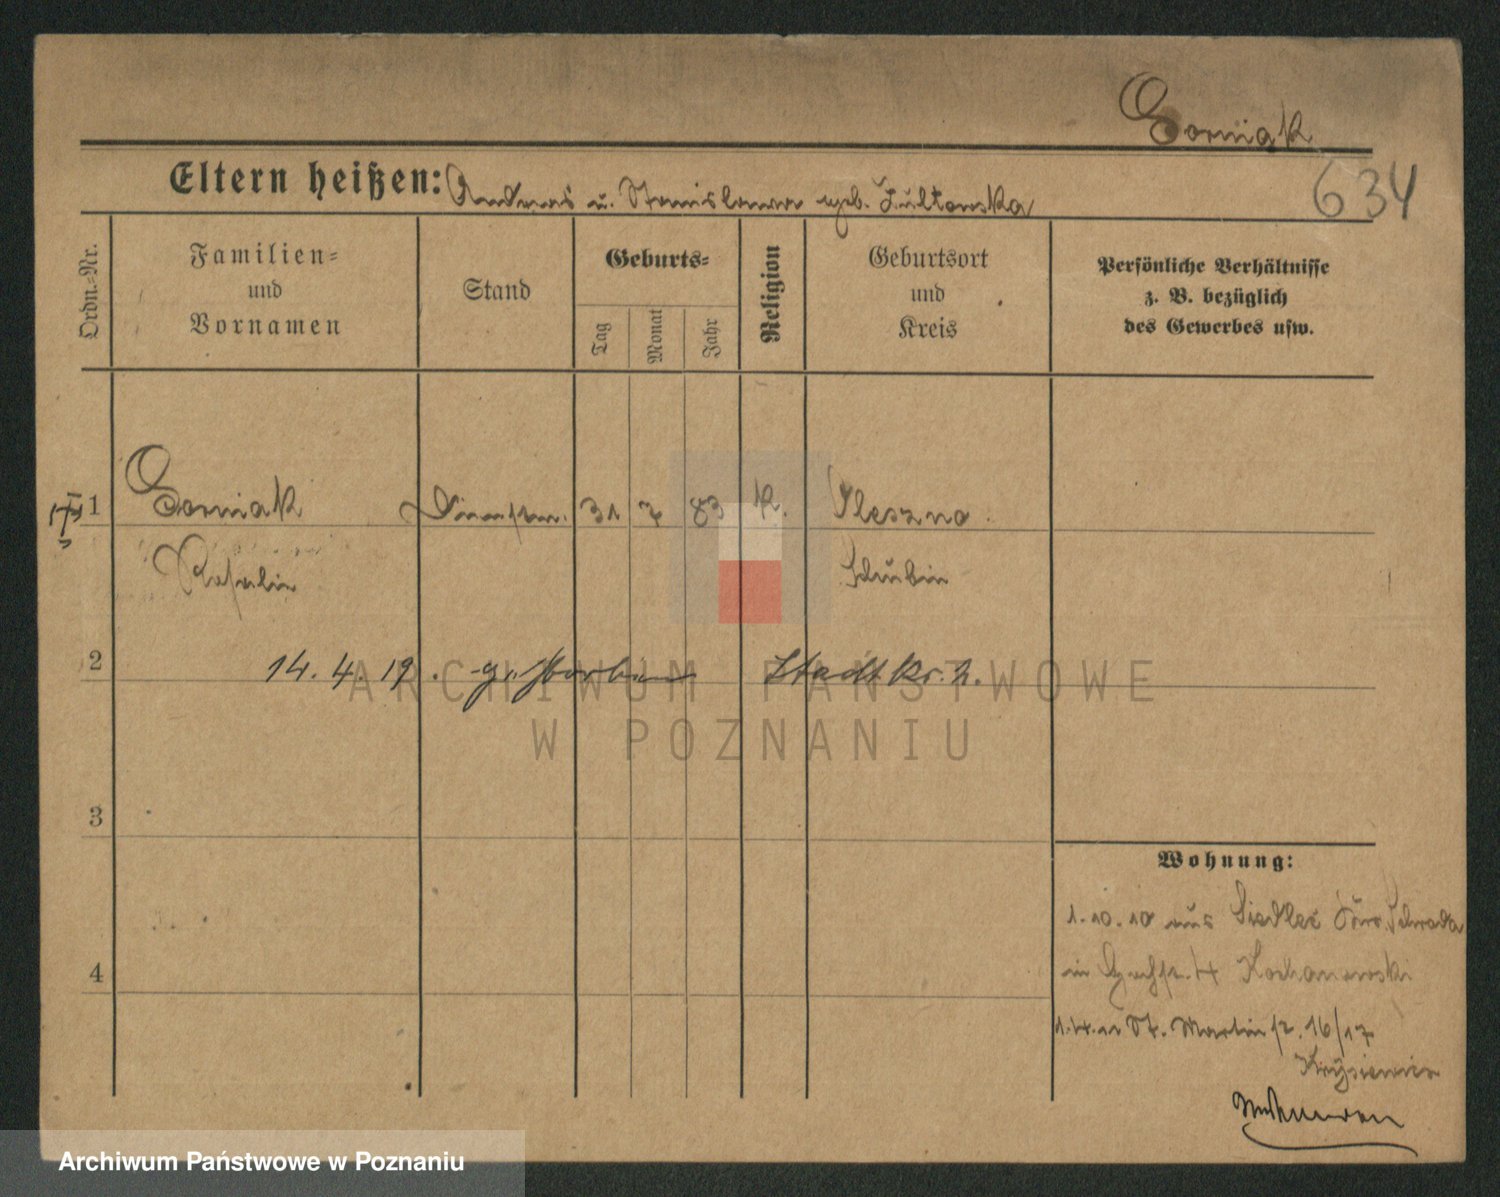 Gorniak
Eltern heißen: Andreas u. Stanislawa geb. Zultowska
634
Ordn.=Nr.
Familien=
und
Vornamen
Stand
Geburts=
Tag
Monat
Jahr
Religion
Geburtsort
und
Kreis
Persönliche Verhältnisse
z. B. bezüglich
des Gewerbes usw.
1 Gorniak Dienstm. 31 7 83 K. Pleszno
Rosalie Schubin
2 14. 4. 19. gestorben Stadtkr. h.
3
4
Wohnung:
1.10.10 aus Siedlec Schroda
in 4 Kochanowski
1.4.11 St. Martinstr. 16/17
Krysiewicz
ARCHIWUM PAŃSTWOWE
W POZNANIU
Archiwum Państwowe w Poznaniu